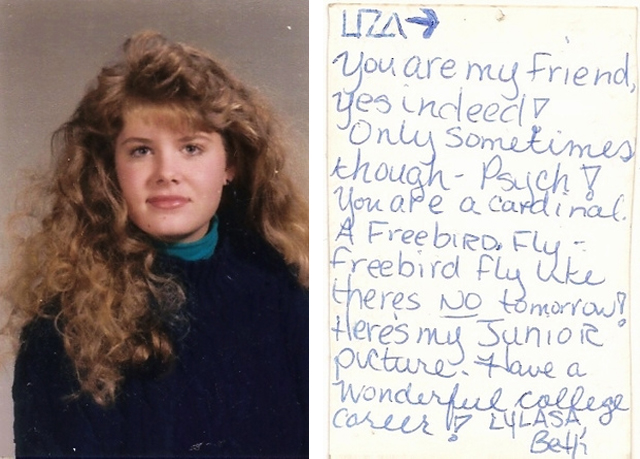 LIZA→
You are my friend,
yes indeed!
Only sometimes
though - Psych!
You are a cardinal.
A FreebiRD. Fly -
freebird fly like
theres NO tomorrow!
Here's my JunioR
picture. Have a
Wonderful college
career! LYLASA,
Beth